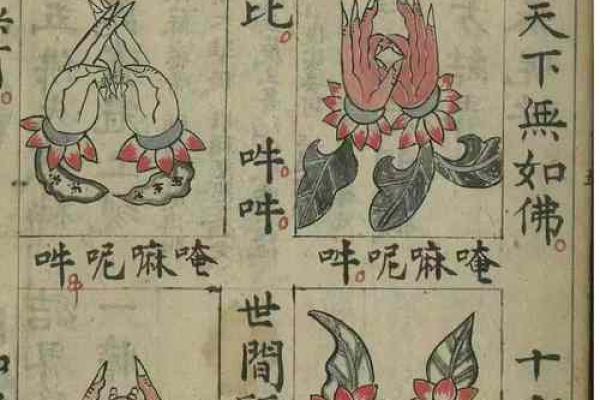 天下無如佛
十
唵嘛呢吽
比
吽吽
世間
唵嘛呢吽